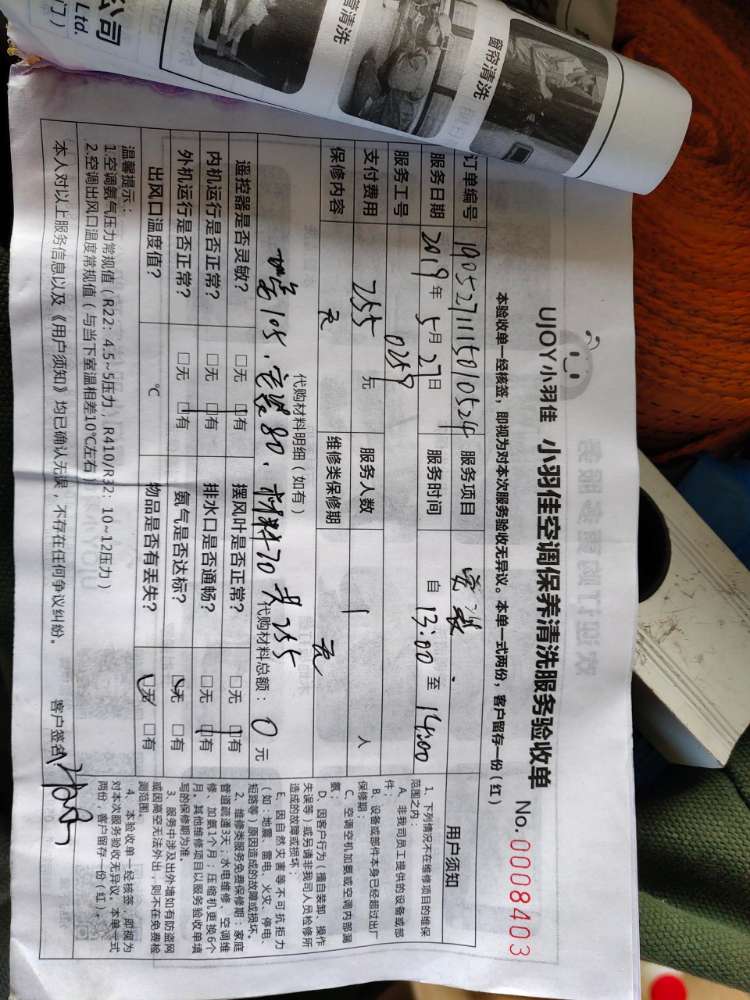 公司
Ltd.
门）
清洗
窗帘清洗
UJOY小羽佳 小羽佳空调保养清洗服务验收单
No. 00008403
本验收单一经核签，即视为对本次服务验收无异议。本单一式两份，客户留存一份(红)
订单编号 1905271115010524 服务项目 安装
服务日期 2019年5月27日 服务时间 自 13:00 至 14:00
服务工号 0259
支付费用 255 元 服务人数 1 人
保修内容 无 维修类保修期 无
代购材料明细(如有)
105、安装80、材料70 共255
代购材料总额：0元
遥控器是否灵敏？ □无 □有 摆风叶是否正常？ □无 □有
内机运行是否正常？ □无 □有 排水口是否通畅？ □无 □有
外机运行是否正常？ □无 □有 氨气是否达标？ □无 □有
出风口温度值？ ℃ 物品是否有丢失？ □无 □有
温馨提示：
1.空调氨气压力常规值（R22：4.5~5压力，R410/R32：10~12压力）
2.空调出风口温度常规值（与当下室温相差10℃左右）
本人对以上服务信息以及《用户须知》均已确认无误，不存在任何争议纠纷。 客户签名
用户须知
1、下列情况不在维修项目的维保
范围之内：
A、非我司员工提供的设备或部
件；
B、设备或部件本身已经超过出厂
保修期；
C、空调空机加氨或空调内部漏
氨；
D、因客户行为（擅自装卸、操作
失误等）或另请非我司人员检修所
造成的故障或损坏；
E、因自然灾害等不可抗拒力
（如：地震、雷电、火灾、停电、
短路等）原因造成的故障或损坏。
2、维修类服务免费保修期：家庭
管道疏通3天；水电维修、空调维
修、加氨1个月；压缩机更换6个
月；其他维修项目以服务验收单填
写的保修期为准。
3、服务中涉及出外墙如有防盗网
或因高空无法外出，则不在免费检
测范围。
4、本验收单一经核签，即视为
对本次服务验收无异议。本单一式
两份，客户留存一份(红)。